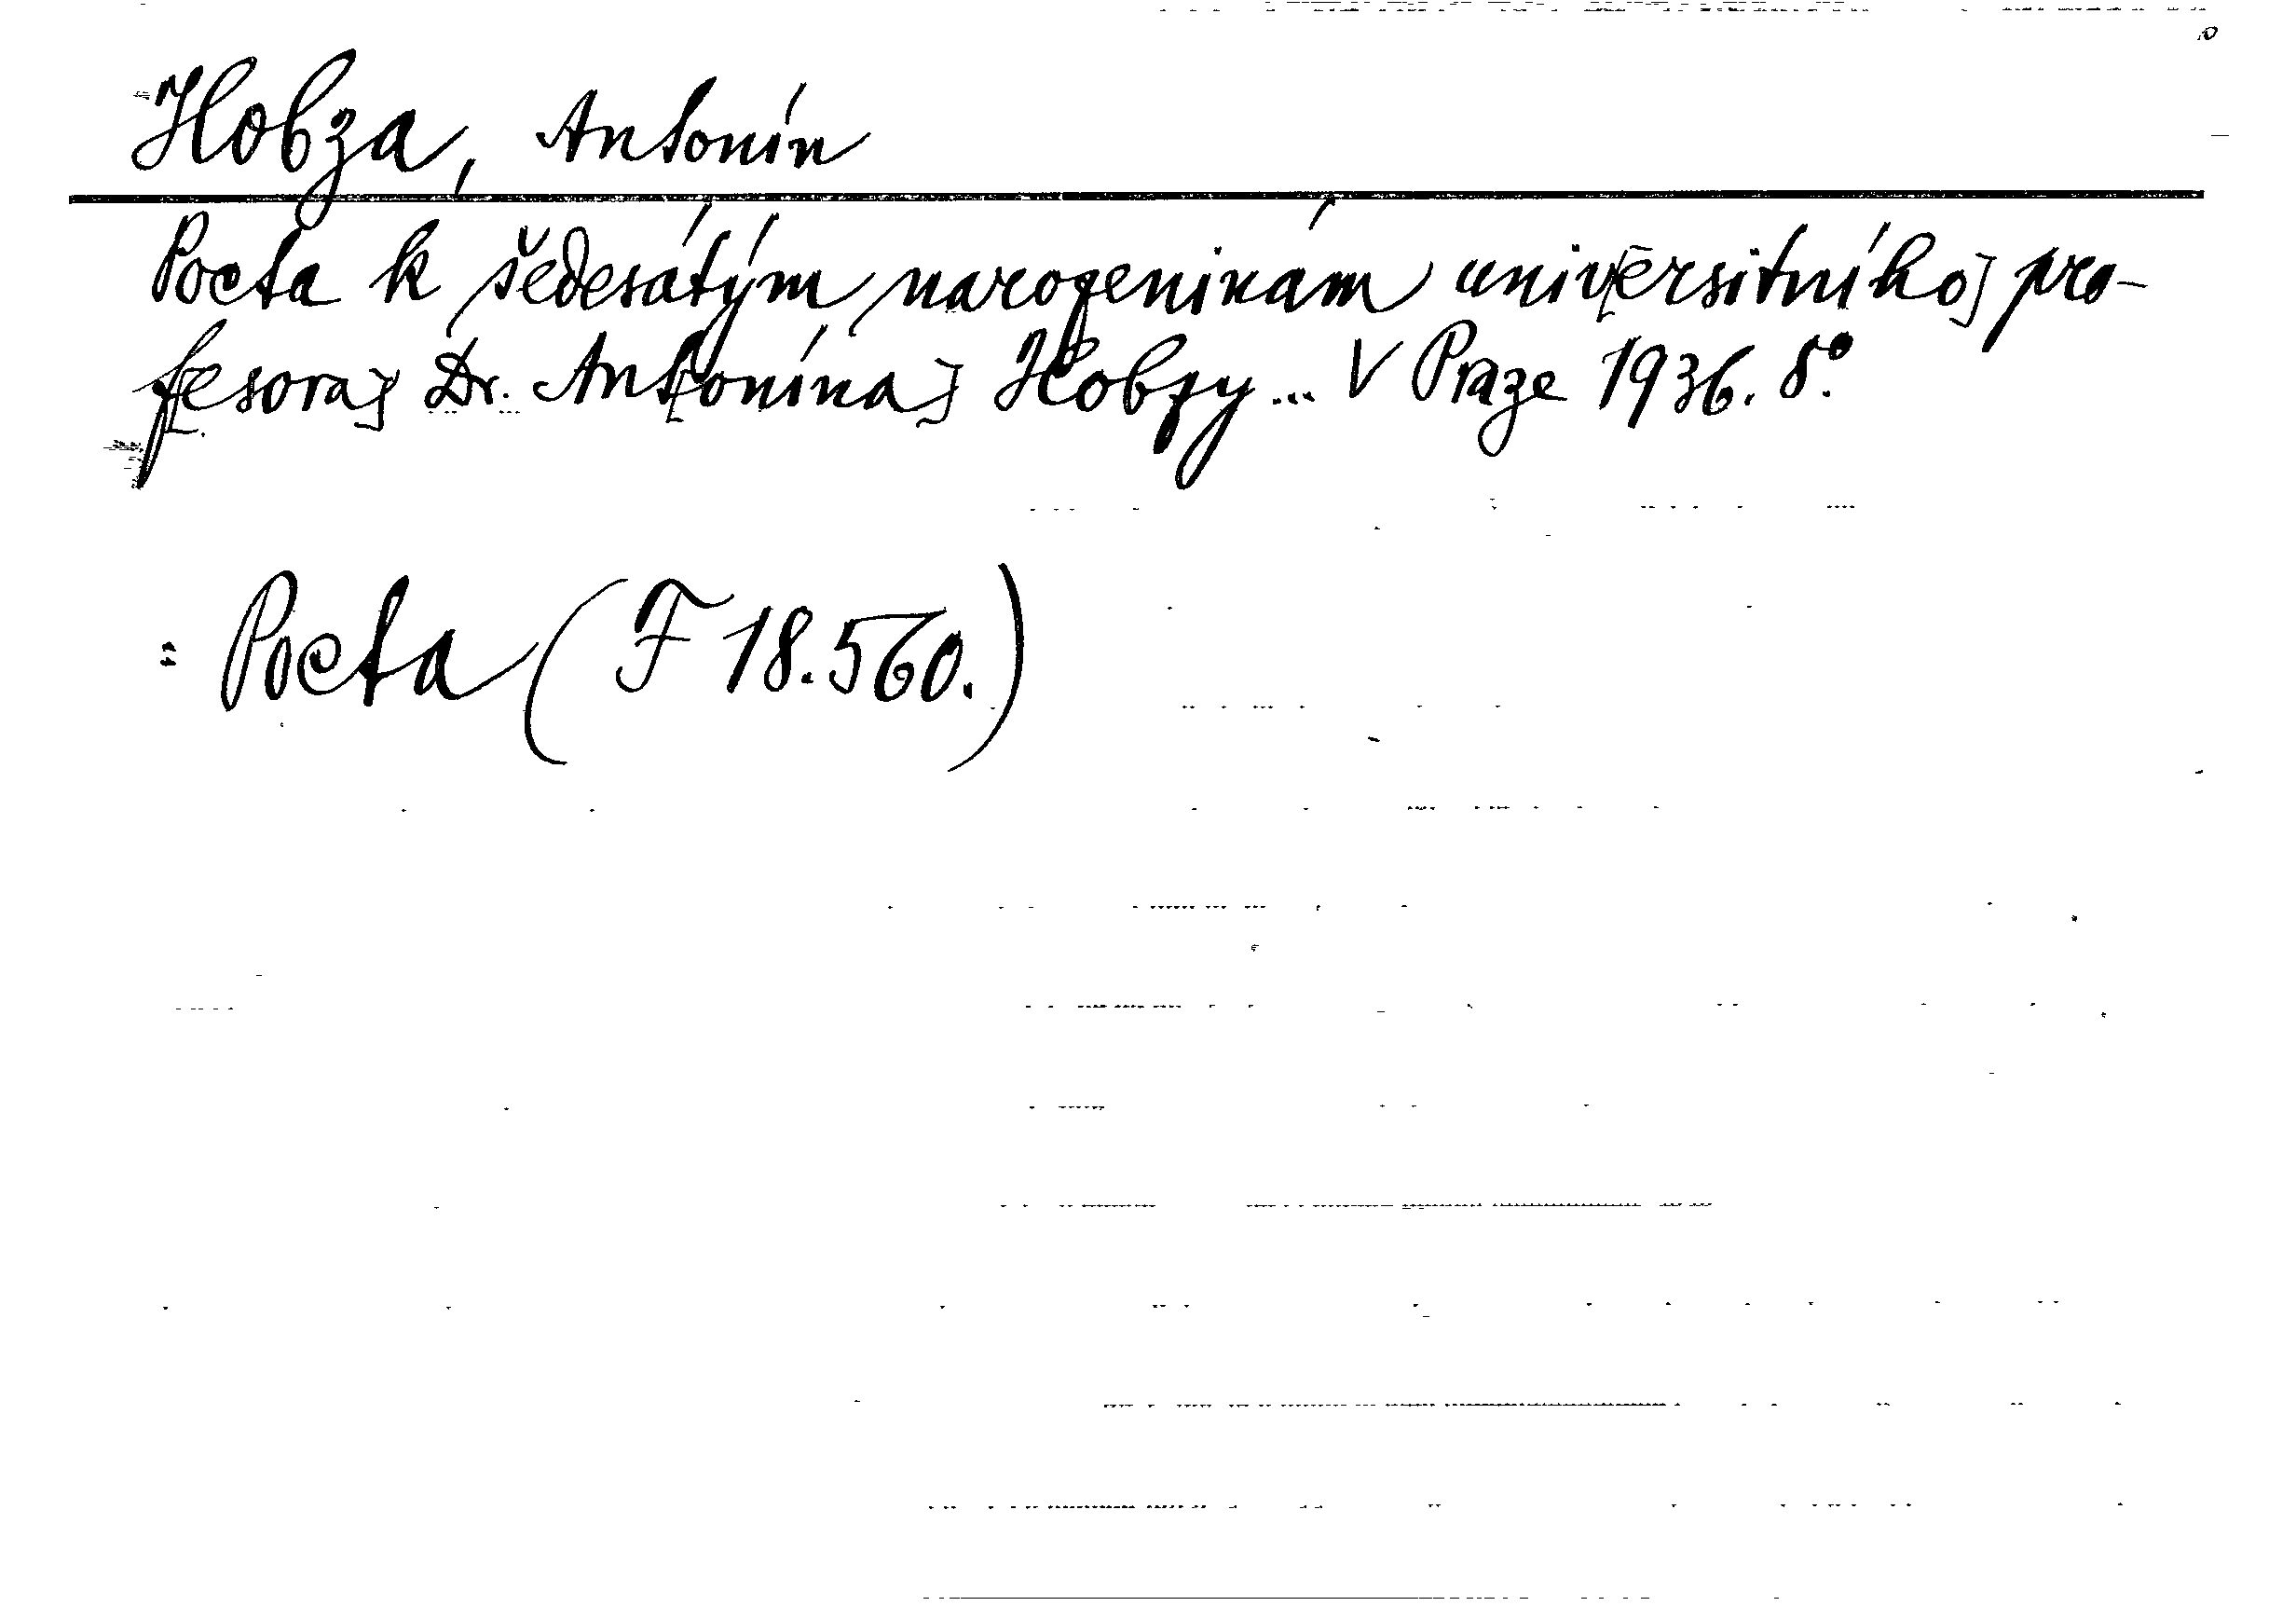 Hobza, Antonín
Pocta k šedesátým narozeninám univ[ersitního] pro-
f[esora] Dr. Ant[onína] Hobzy... V Praze 1936. 8°.
= Pocta (F 18.560.)